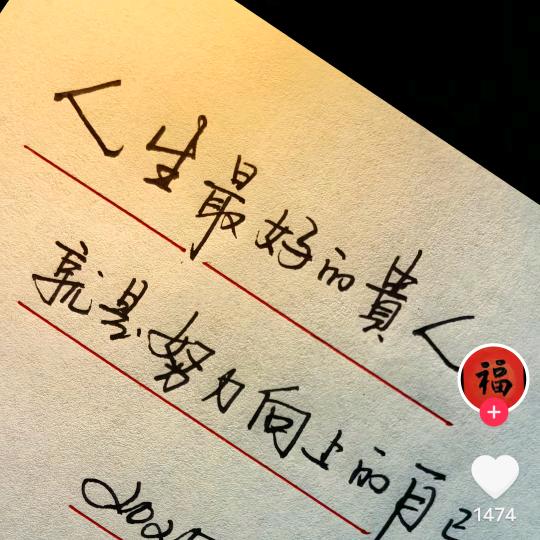 人生最好的貴人
就是努力向上的自己
202
福
1474